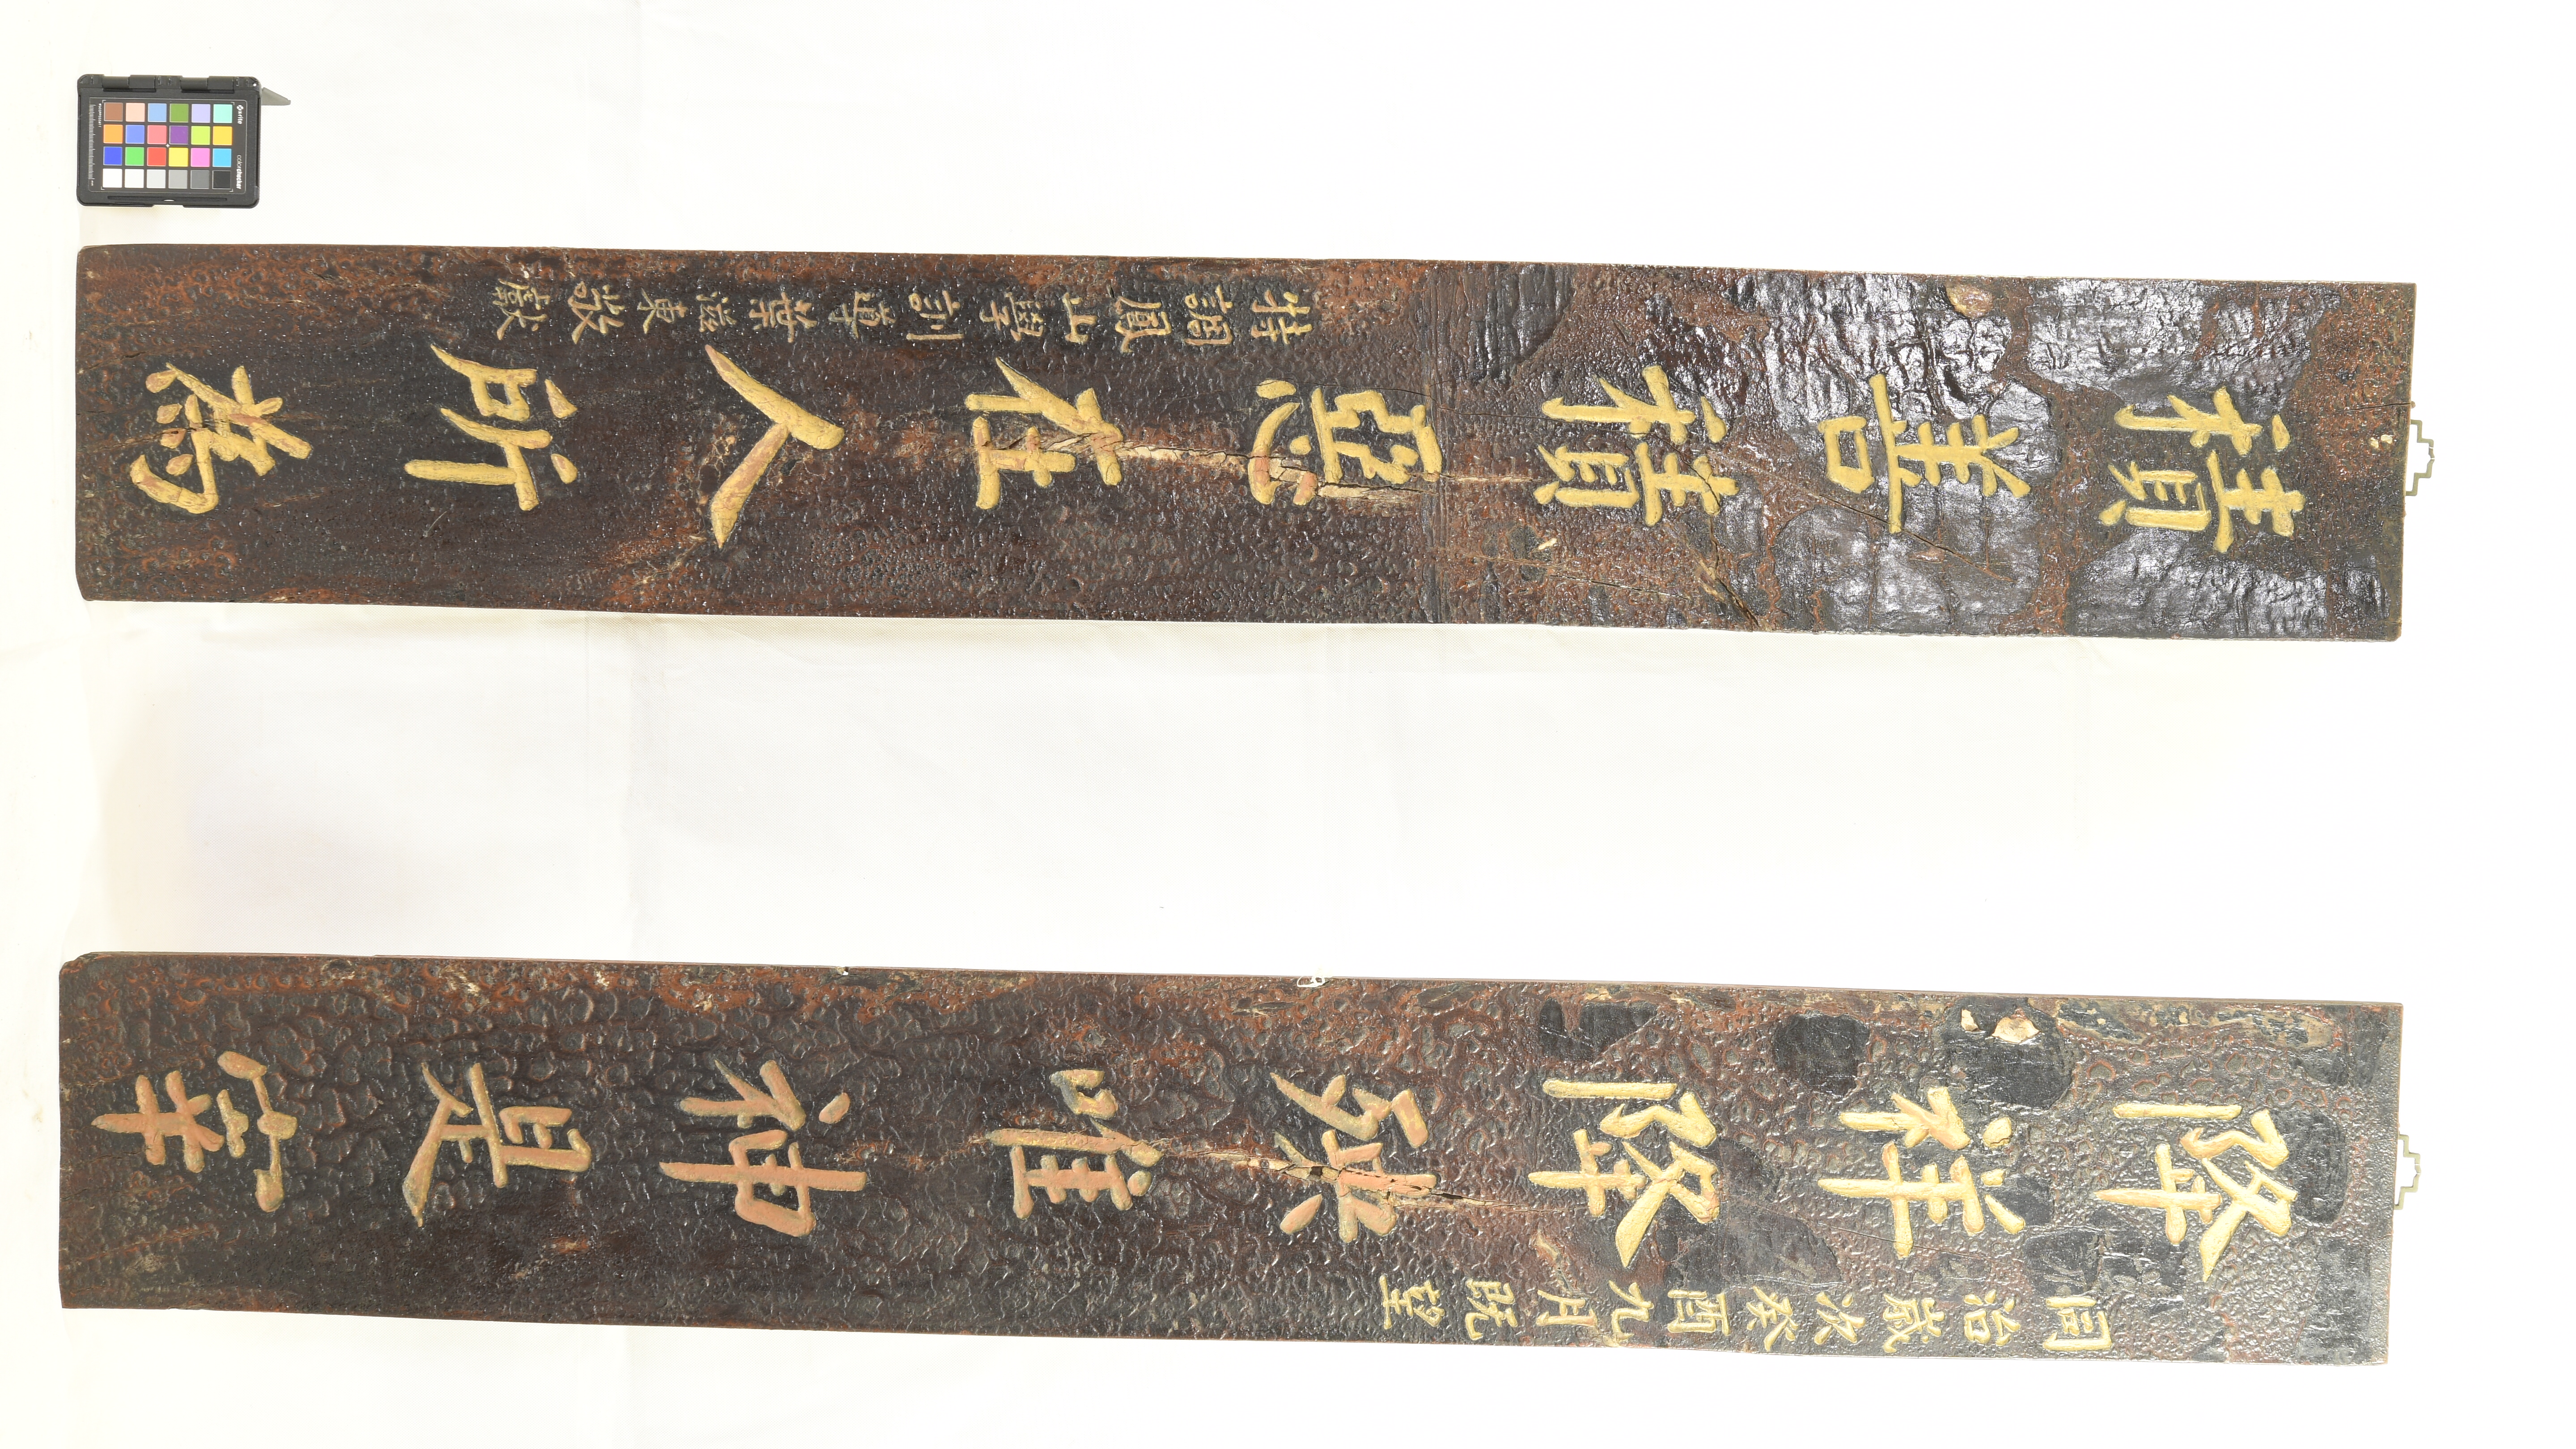 同治歲次癸酉九月既望
降祥降殃唯神是宰
積善積惡在人所為
特調鳳山學訓導葉滋東敬獻